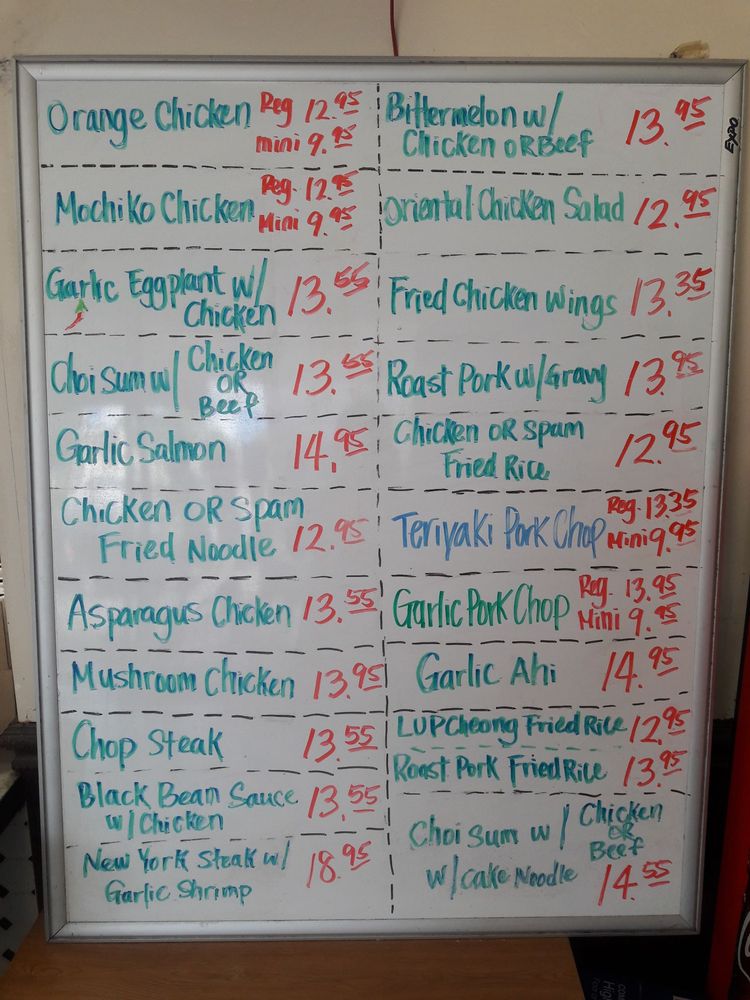 Orange Chicken Reg 12.95
mini 9.95
Mochiko Chicken Reg. 12.95
Mini 9.95
Garlic Eggplant w/ 13.55
Chicken
Choi Sum w/ Chicken 13.55
OR
Beef
Garlic Salmon 14.95
Chicken OR Spam
Fried Noodle 12.95
Asparagus Chicken 13.55
Mushroom Chicken 13.95
Chop Steak 13.55
Black Bean Sauce 13.55
w/Chicken
New York Steak w/ 18.95
Garlic Shrimp
Bittermelon w/ 13.95
Chicken OR Beef
Oriental Chicken Salad 12.95
Fried Chicken Wings 13.35
Roast Pork w/Gravy 13.95
Chicken OR Spam 12.95
Fried Rice
Teriyaki Pork Chop Reg. 13.35
Mini 9.95
Garlic Pork Chop Reg. 13.95
Mini 9.95
Garlic Ahi 14.95
LUP Cheong Fried Rice 12.95
Roast Pork Fried Rice 13.95
Choi Sum w/ Chicken
OR
Beef
w/Cake Noodle 14.55
EXPO